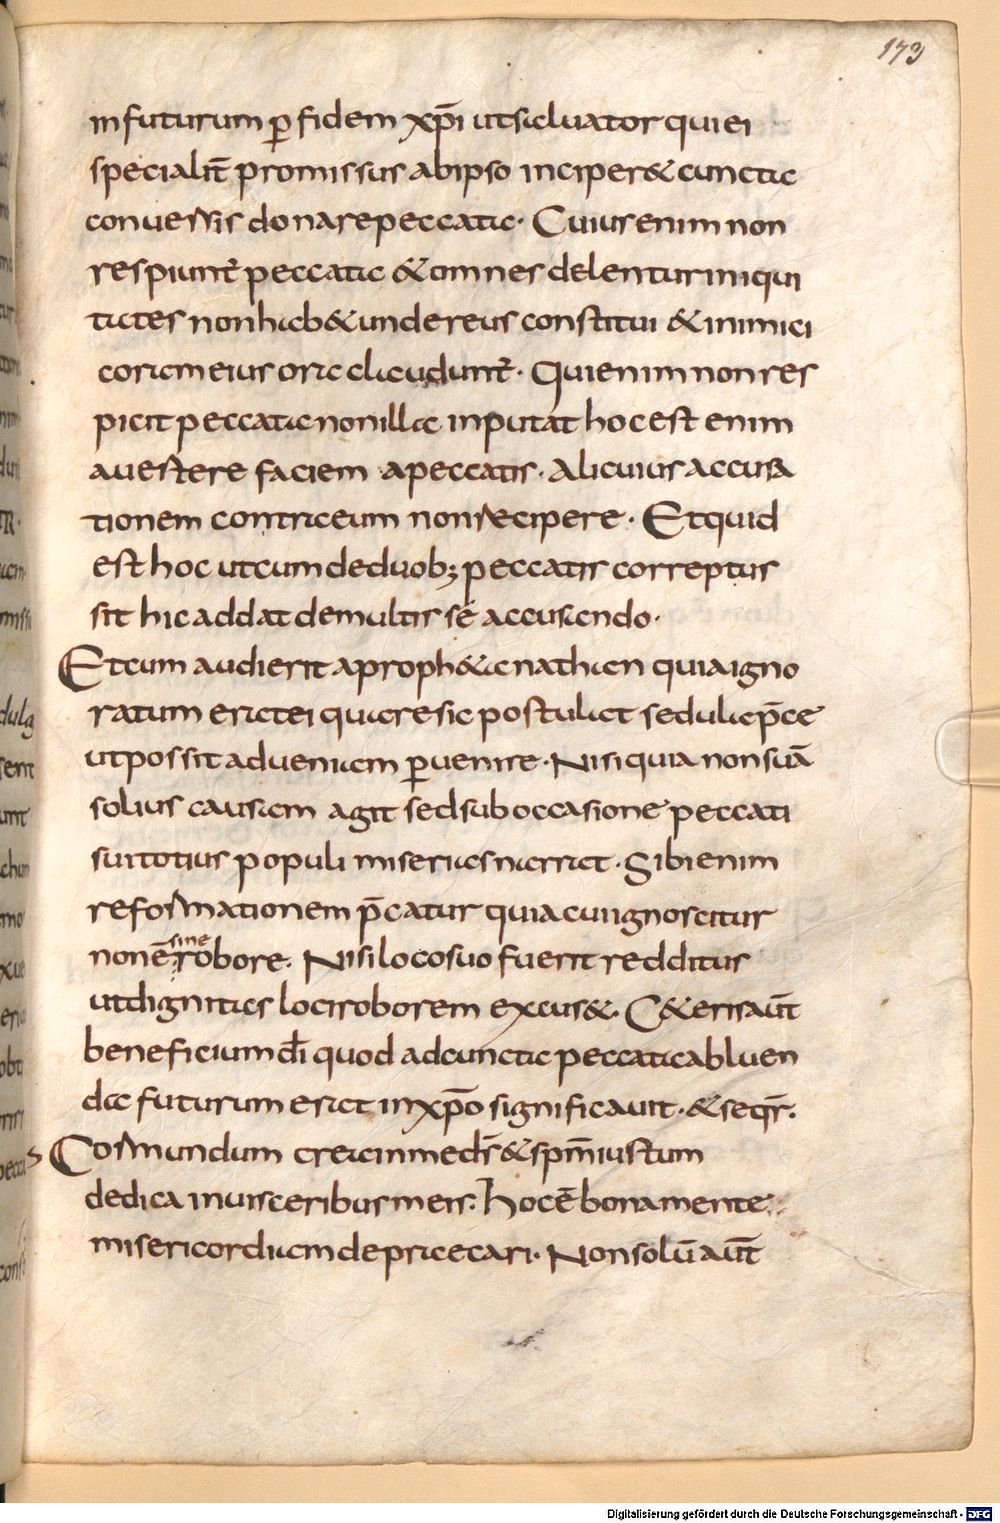 173
infuturum p̱ fidem xp̄i utsaluator quiei
specialit̄ promissus abipso inciper& cuncta
conuersis donare peccata· Cuius enim non
respiunt̄ peccata & omnes delentur iniqui
tates non hab& undereus constitui & inimici
coram eius ora claudunt̄· Qui enim non res
picit peccata non illa inputat hoc est enim
auertere faciem a peccatis· Alicuius accusa
tionem contra eum non recipere· Et quid
est hoc ut cum de duob; peccatis correptus
sit hic addat de multis se accusando·
Et cum audierit a proph&a nathan quia igno
ratum erat ei quare sic postulat sedula p̄ce
ut possit ad ueniam p̱uenire· Nisi quia non suā
solius causam agit sed sub occasione peccati
sui totius populi miserias narrat· Sibi enim
reformationem p̄catur quia cui ignoscitur
non ē sine robore· Nisi loco suo fuerit redditus
ut dignitas loci roborem excus&· C&eris aut̄
beneficium dī quod ad cuncta peccata abluen
da futurum erat in xp̄o significauit· & seqr̄·
Cor mundum crea in me ds̄ & spm̄ iustum
dedica in uisceribus meis· hoc ē bona mente
misericordiam depraecari· Non solū aut̄
Digitalisierung gefördert durch die Deutsche Forschungsgemeinschaft - DFG